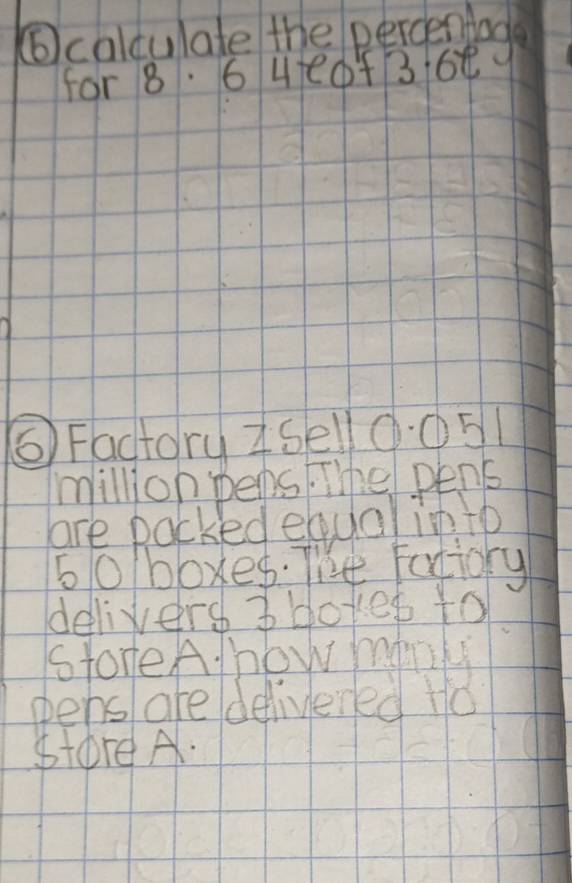 ⑤calculate the percentage
for 8.64ℓof 3.6ℓ
⑥Factory Z sell 0.051
million pens. The pens
are packed equal into
50 boxes. The Factory
delivers 3 boxes to
store A. how many
pens are delivered to
store A.